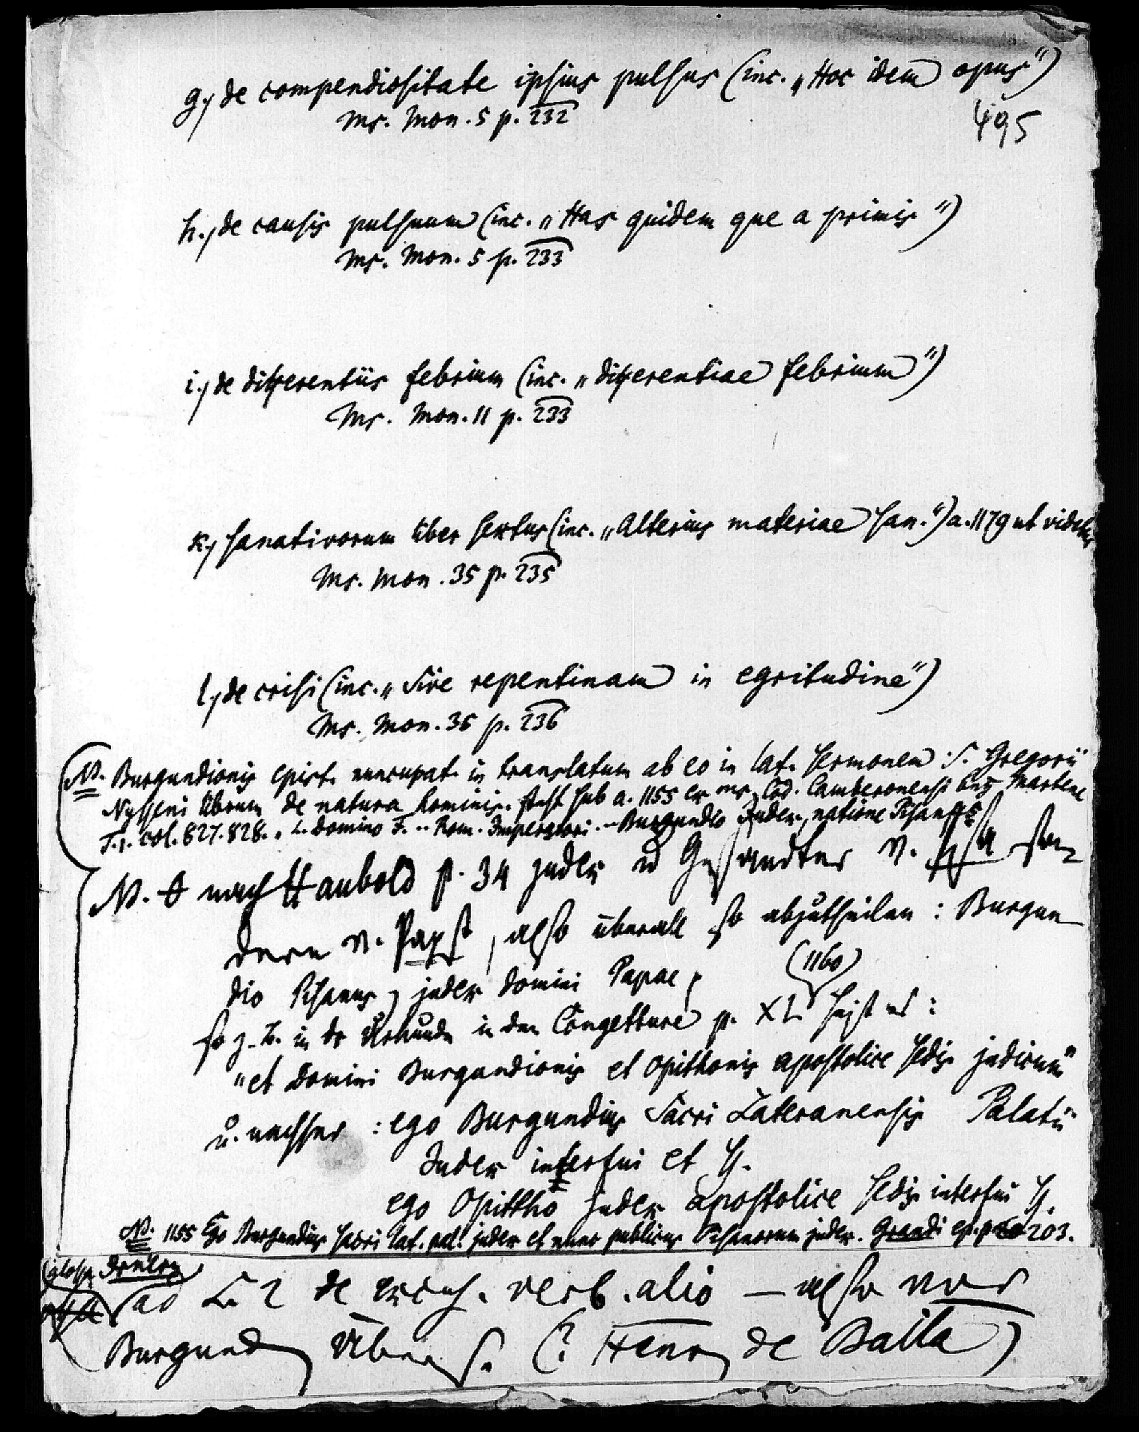 g., de compendiositate ipsius pulsus (inc. „Hoc idem opus")
Ms. Mon. 5 p. 232
495
h., de causis pulsuum (inc. „Has quidem que a primis")
Ms. Mon. 5 p. 233
i., de differentiis febrium (inc. „differentiae febrium")
Ms. Mon. 11 p. 233
k., sanativorum liber sextus (inc. „Alterius materiae san.") a. 1179 ut videtur
Ms. Mon. 35 p. 235
l., de crisi (inc. „Sive repentinam in egritudine")
Ms. Mon. 35 p. 236
NB. Burgundionis epist. nuncupat. in translatum ab eo in lat. sermonem S. Gregorii
Nysseni librum de natura hominis. steht sub a. 1155 ex ms. Cod. Camberonensi bey Martene
T. 1. col. 827. 828. „ Domino F. .. Rom. Imperatori. — Burgundio Judex, natione Pisanus
NB. nach Haubold p. 34 judex u Gesandter v. son-
dern v. Papst, also überall so abzutheilen : Burgun
dio Pisanus, judex domini Papae,
(1160)
so z. B. in der Urkunde in den Congetture p. XL heißt es :
„et Domini Burgundionis et Opithonis apostolice sedis judicum"
u. nachher : ego Burgundius Sacri Lateranensis Palatii
Judex interfui et ss.
ego Opittho judex apostolice sedis interfui ss.
NB. 1155 Ego Burgundius sacri lat. pal. judex et nunc publicus Pisanorum judex. Grandi ep. p. 203.
ad L. 2 de verb. alio — also war
Burgund Übers. (? Henr de Baila)